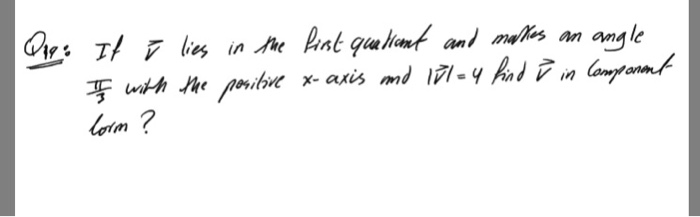 Q19: If v⃗ lies in the first quadrant and makes an angle
π/3 with the positive x-axis and |v⃗|=4 find v⃗ in Component
form ?